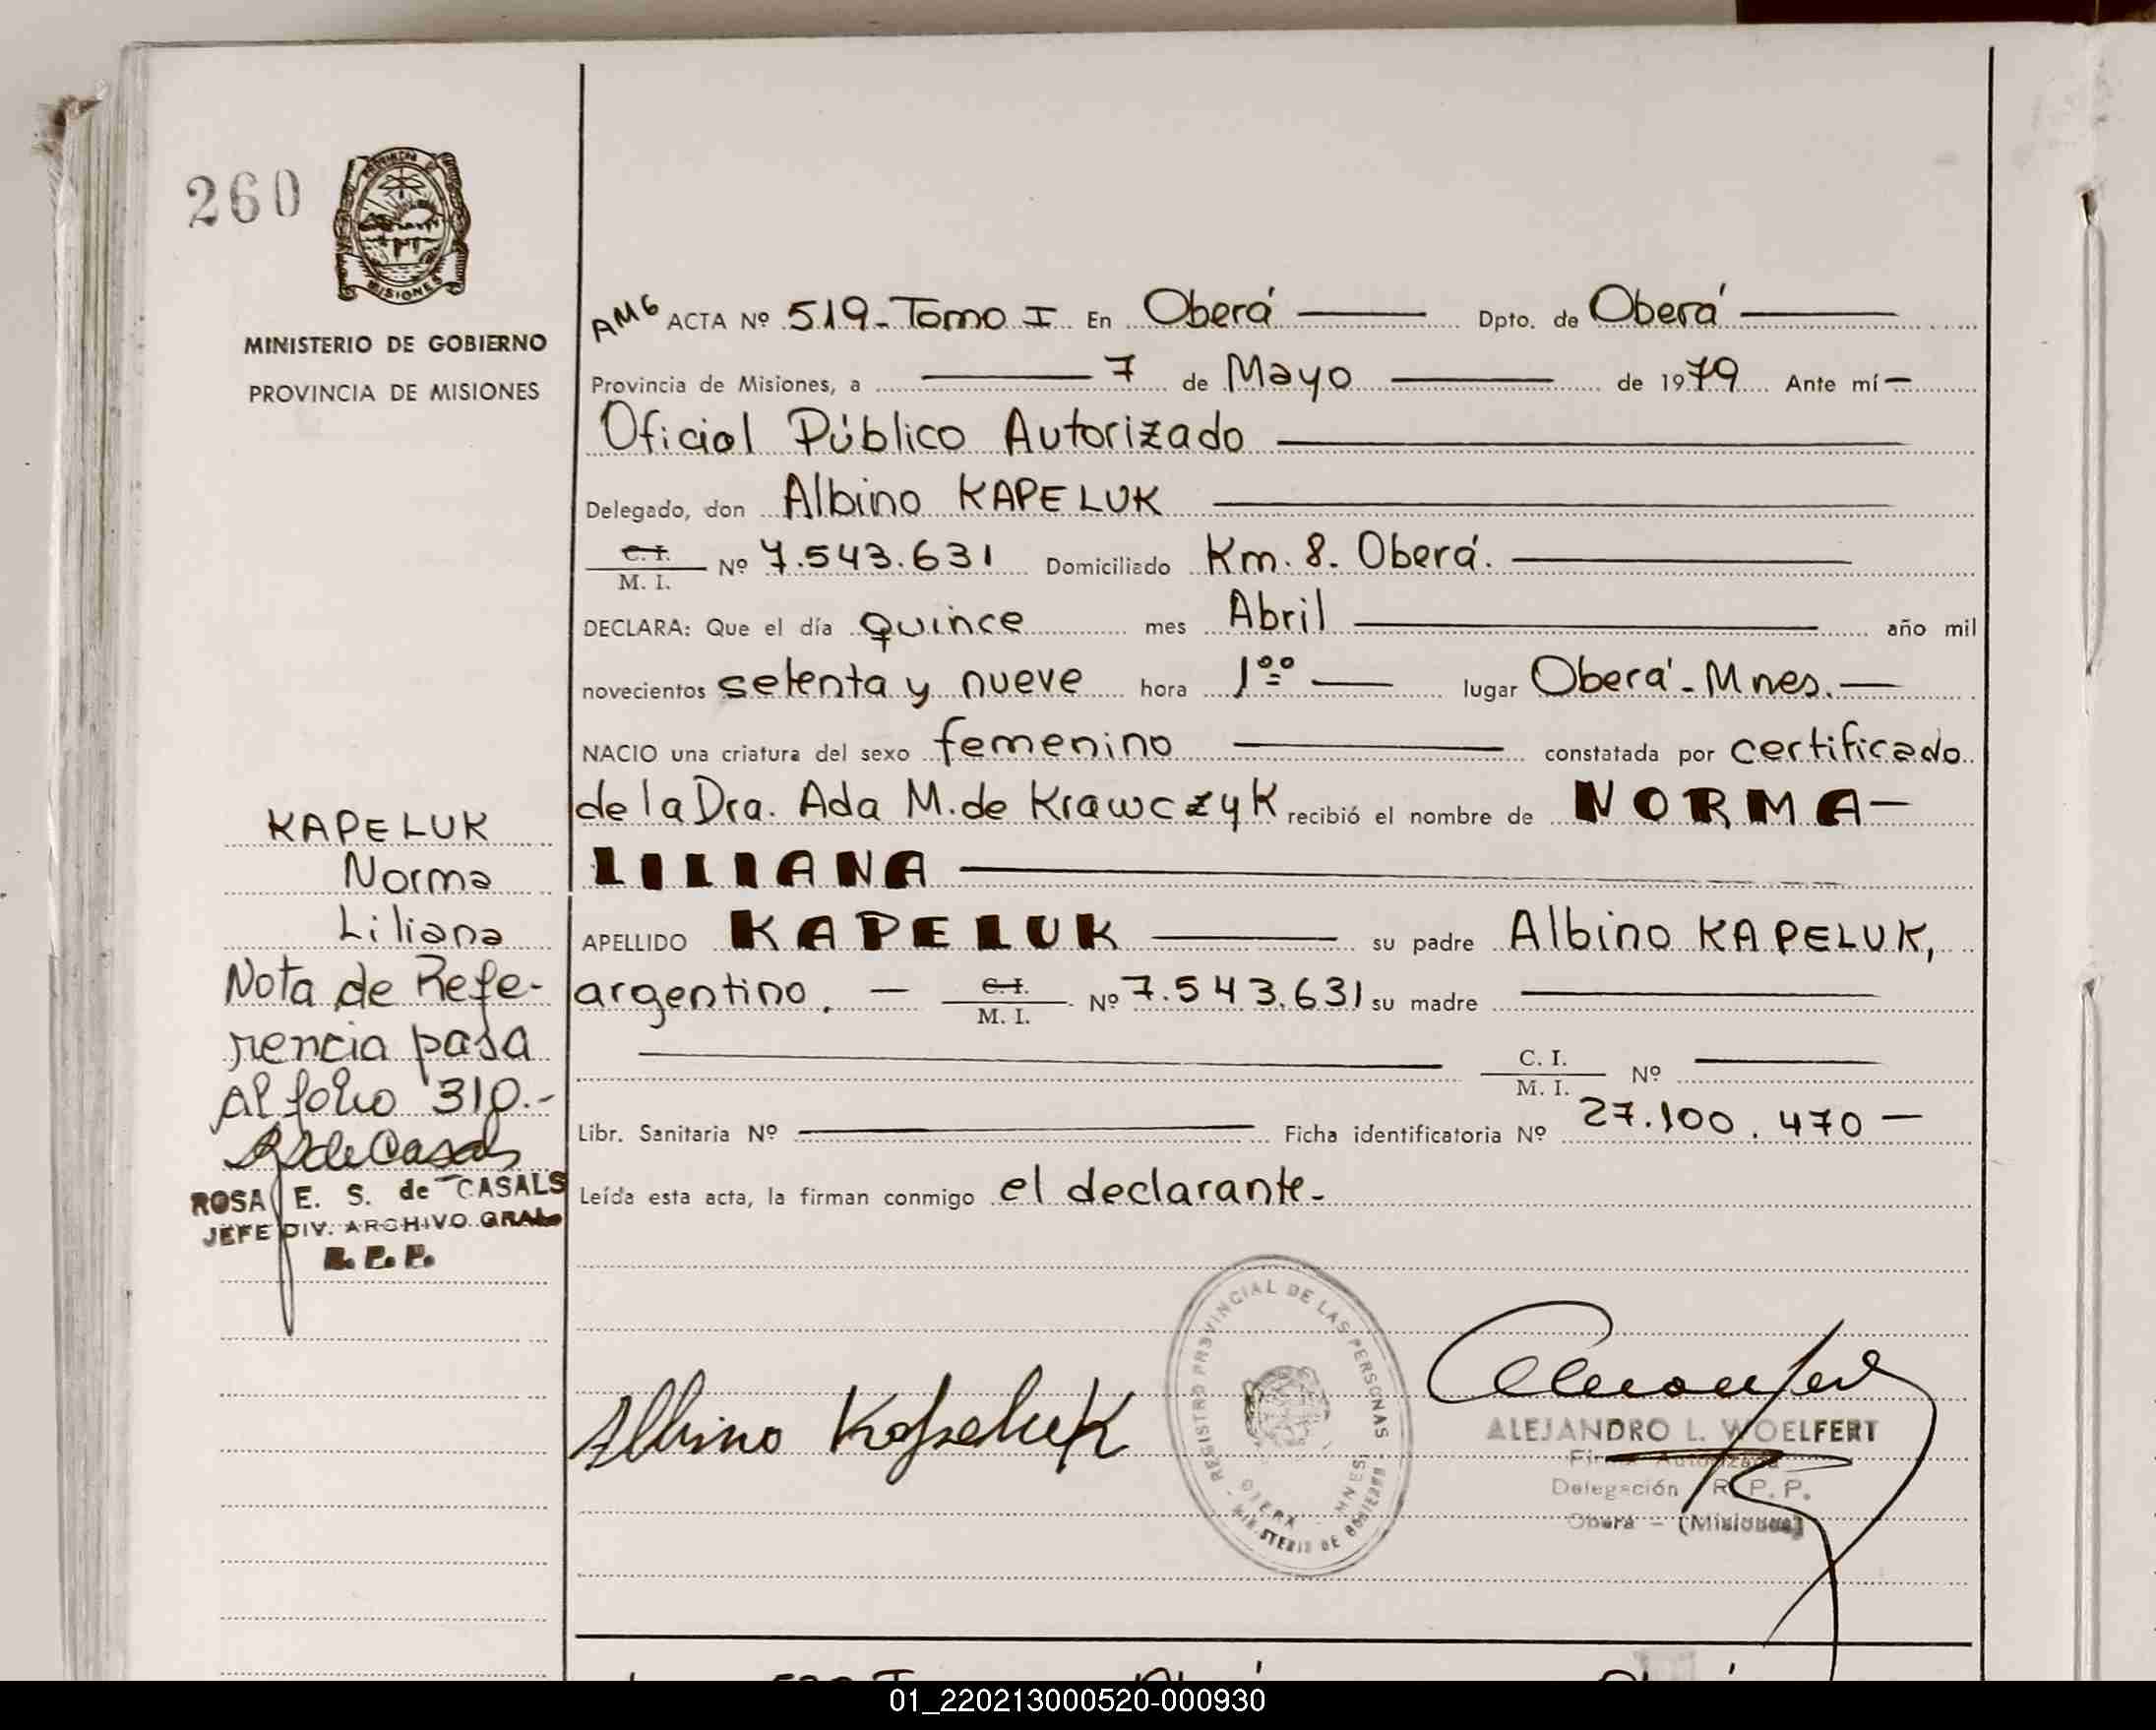 260
PROVINCIA DE
MISIONES
MINISTERIO DE GOBIERNO
PROVINCIA DE MISIONES
AMG ACTA Nº 519-Tomo I En Oberá Dpto. de Oberá
Provincia de Misiones, a 7 de Mayo de 1979 Ante mí
Oficial Público Autorizado
Delegado, don Albino KAPELUK
C. I.
M. I. Nº 7.543.631 Domiciliado Km. 8. Oberá.
DECLARA: Que el día quince mes Abril año mil
novecientos setenta y nueve hora 1ºº lugar Oberá-Mnes.
NACIO una criatura del sexo femenino constatada por certificado
de la Dra. Ada M. de Krawczyk recibió el nombre de NORMA
LILIANA
APELLIDO KAPELUK su padre Albino KAPELUK,
argentino. C. I.
M. I. Nº 7.543.631 su madre
C. I.
M. I. Nº
Libr. Sanitaria Nº Ficha identificatoria Nº 27.100.470
Leída esta acta, la firman conmigo el declarante.
KAPELUK
Norma
Liliana
Nota de Refe-
rencia pasa
Al folio 310.-
RSdeCasals
ROSA E. S. de CASALS
JEFE DIV. ARCHIVO GRAL.
R. P. P.
Albino Kapeluk
REGISTRO PROVINCIAL DE LAS PERSONAS
OBERA - MNES.
MINISTERIO DE GOBIERNO
ALEJANDRO L. WOELFERT
Firma Autorizada
Delegación R. P. P.
Oberá - (Misiones)
01_220213000520-000930